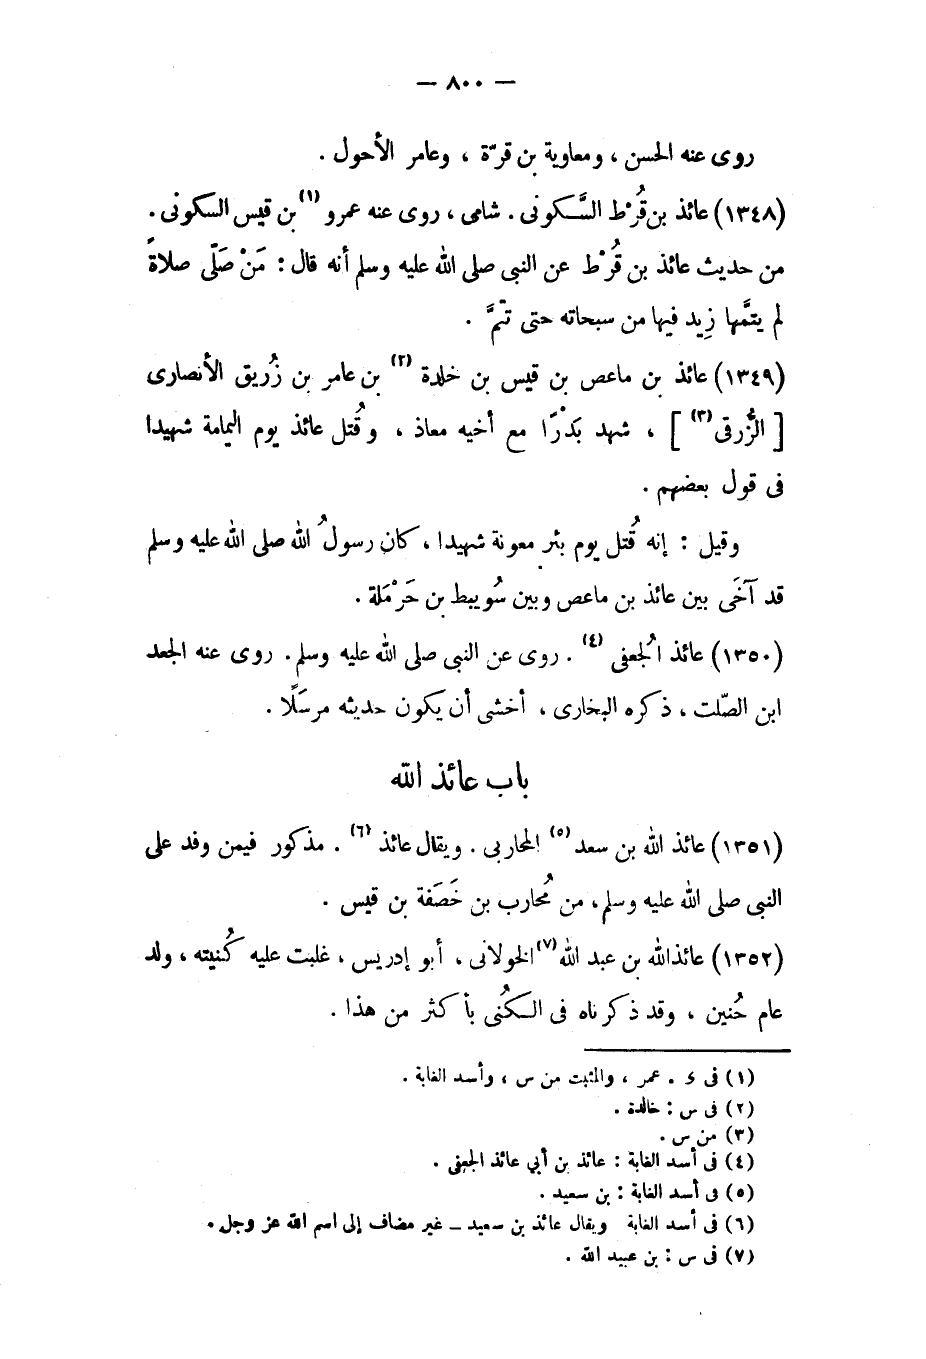 — ٨٠٠ —
روى عنه الحسن ، ومعاوية بن قرّة ، وعامر الأحول .
(١٣٤٨) عائذ بن قُرْط السَّكونى . شامى ، روى عنه عمرو (١) بن قيس السكونى .
من حديث عائذ بن قُرْط عن النبى صلى الله عليه وسلم أنه قال : مَنْ صَلّى صلاةً
لم يتمَّها زِيد فيها من سبحاته حتى تتمَّ .
(١٣٤٩) عائذ بن ماعص بن قيس بن خلدة (٢) بن عامر بن زُريق الأنصارى
[ الزُّرقى (٣) ] ، شهد بَدْرًا مع أخيه معاذ ، وقُتل عائذ يوم اليمامة شهيدا
فى قول بعضهم .
وقيل : إنه قُتل يوم بئر معونة شهيدا ، كان رسولُ الله صلى الله عليه وسلم
قد آخَى بين عائذ بن ماعص وبين سُويبط بن حَرْمَلة .
(١٣٥٠) عائذ الُجعفى (٤) . روى عن النبى صلى الله عليه وسلم . روى عنه الجعد
ابن الصّلت ، ذكره البخارى ، أخشى أن يكون حديثه مرسَلًا .
باب عائذ الله
(١٣٥١) عائذ الله بن سعد (٥) المحاربى . ويقال عائذ (٦) . مذكور فيمن وفد على
النبى صلى الله عليه وسلم ، من مُحارب بن خَصَفة بن قيس .
(١٣٥٢) عائذ الله بن عبد الله (٧) الخولانى ، أبو إدريس ، غلبت عليه كُنيته ، ولد
عام حُنين ، وقد ذكرناه فى الكُنى بأكثر من هذا .
(١) فى ء . عمر ، والمثبت من س ، وأسد الغابة .
(٢) فى س : خالدة .
(٣) من س .
(٤) فى أسد الغابة : عائذ بن أبي عائذ الجعفى .
(٥) فى أسد الغابة : بن سعيد .
(٦) فى أسد الغابة ويقال عائذ بن سعيد ــ غير مضاف إلى اسم الله عز وجل .
(٧) فى س : بن عبيد الله .